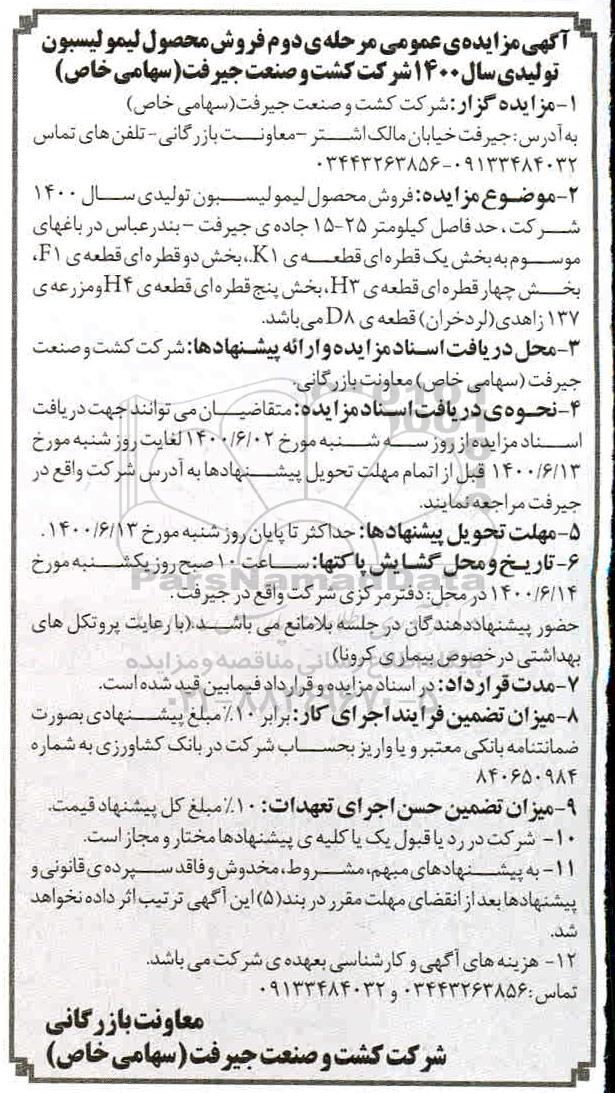 آگهی مزایده‌ی عمومی مرحله‌ی دوم فروش محصول لیمو لیسبون
تولیدی سال ۱۴۰۰ شرکت کشت و صنعت جیرفت (سهامی خاص)
۱-مزایده گزار: شرکت کشت و صنعت جیرفت(سهامی خاص)
به آدرس: جیرفت خیابان مالک اشتر –معاونت بازرگانی- تلفن های تماس
۰۹۱۳۳۴۸۴۰۳۲-۰۳۴۴۳۲۶۳۸۵۶
۲-موضوع مزایده: فروش محصول لیمو لیسبون تولیدی سال ۱۴۰۰
شرکت، حد فاصل کیلومتر ۲۵-۱۵ جاده ی جیرفت – بندرعباس در باغهای
موسوم به بخش یک قطره ای قطعه ی K۱.،بخش دو قطره ای قطعه ی F۱،
بخش چهار قطره ای قطعه ی H۳، بخش پنج قطره ای قطعه ی H۴ ومزرعه ی
۱۳۷ زاهدی(لردخران) قطعه ی D۸ می باشد.
۳-محل دریافت اسناد مزایده و ارائه پیشنهادها: شرکت کشت و صنعت
جیرفت (سهامی خاص) معاونت بازرگانی.
۴-نحوه ی دریافت اسناد مزایده: متقاضیان می توانند جهت دریافت
اسناد مزایده از روز سه شنبه مورخ ۱۴۰۰/۶/۰۲ لغایت روز شنبه مورخ
۱۴۰۰/۶/۱۳ قبل از اتمام مهلت تحویل پیشنهادها به آدرس شرکت واقع در
جیرفت مراجعه نمایند.
۵-مهلت تحویل پیشنهادها: حداکثر تا پایان روز شنبه مورخ ۱۴۰۰/۶/۱۳.
۶-تاریخ و محل گشایش پاکتها: ساعت ۱۰ صبح روز یکشنبه مورخ
۱۴۰۰/۶/۱۴ در محل: دفتر مرکزی شرکت واقع در جیرفت.
حضور پیشنهاددهندگان در جلسه بلامانع می باشد (با رعایت پروتکل های
بهداشتی درخصوص بیماری کرونا)
۷-مدت قرارداد: در اسناد مزایده و قرارداد فیمابین قید شده است.
۸-میزان تضمین فرایند اجرای کار: برابر ۱۰٪ مبلغ پیشنهادی بصورت
ضمانتنامه بانکی معتبر و یا واریز بحساب شرکت در بانک کشاورزی به شماره
۸۴۰۶۵۰۹۸۴
۹-میزان تضمین حسن اجرای تعهدات: ۱۰٪ مبلغ کل پیشنهاد قیمت.
۱۰- شرکت در رد یا قبول یک یا کلیه ی پیشنهادها مختار و مجاز است.
۱۱- به پیشنهادهای مبهم، مشروط، مخدوش و فاقد سپرده ی قانونی و
پیشنهادها بعد از انقضای مهلت مقرر در بند(۵) این آگهی ترتیب اثر داده نخواهد
شد.
۱۲- هزینه های آگهی و کارشناسی بعهده ی شرکت می باشد.
تماس: ۰۳۴۴۳۲۶۳۸۵۶ و ۰۹۱۳۳۴۸۴۰۳۲
معاونت بازرگانی
شرکت کشت و صنعت جیرفت (سهامی خاص)
ParsNamadData